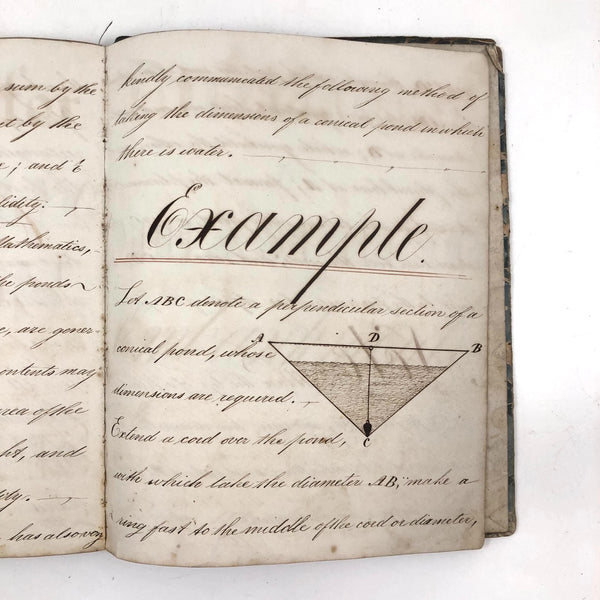 sum by the
t by the
; and
lidity.
Mathematics,
he ponds
e, are gener-
contents may
area of the
ht, and
ity.
has also very
kindly communicated the following method of
taking the dimensions of a conical pond in which
there is water.
Example.
Let ABC denote a perpendicular section of a
A D B
conical pond, whose
dimensions are required.
C
Extend a cord over the pond,
with which take the diameter AB; make a
ring fast to the middle of the cord or diameter,